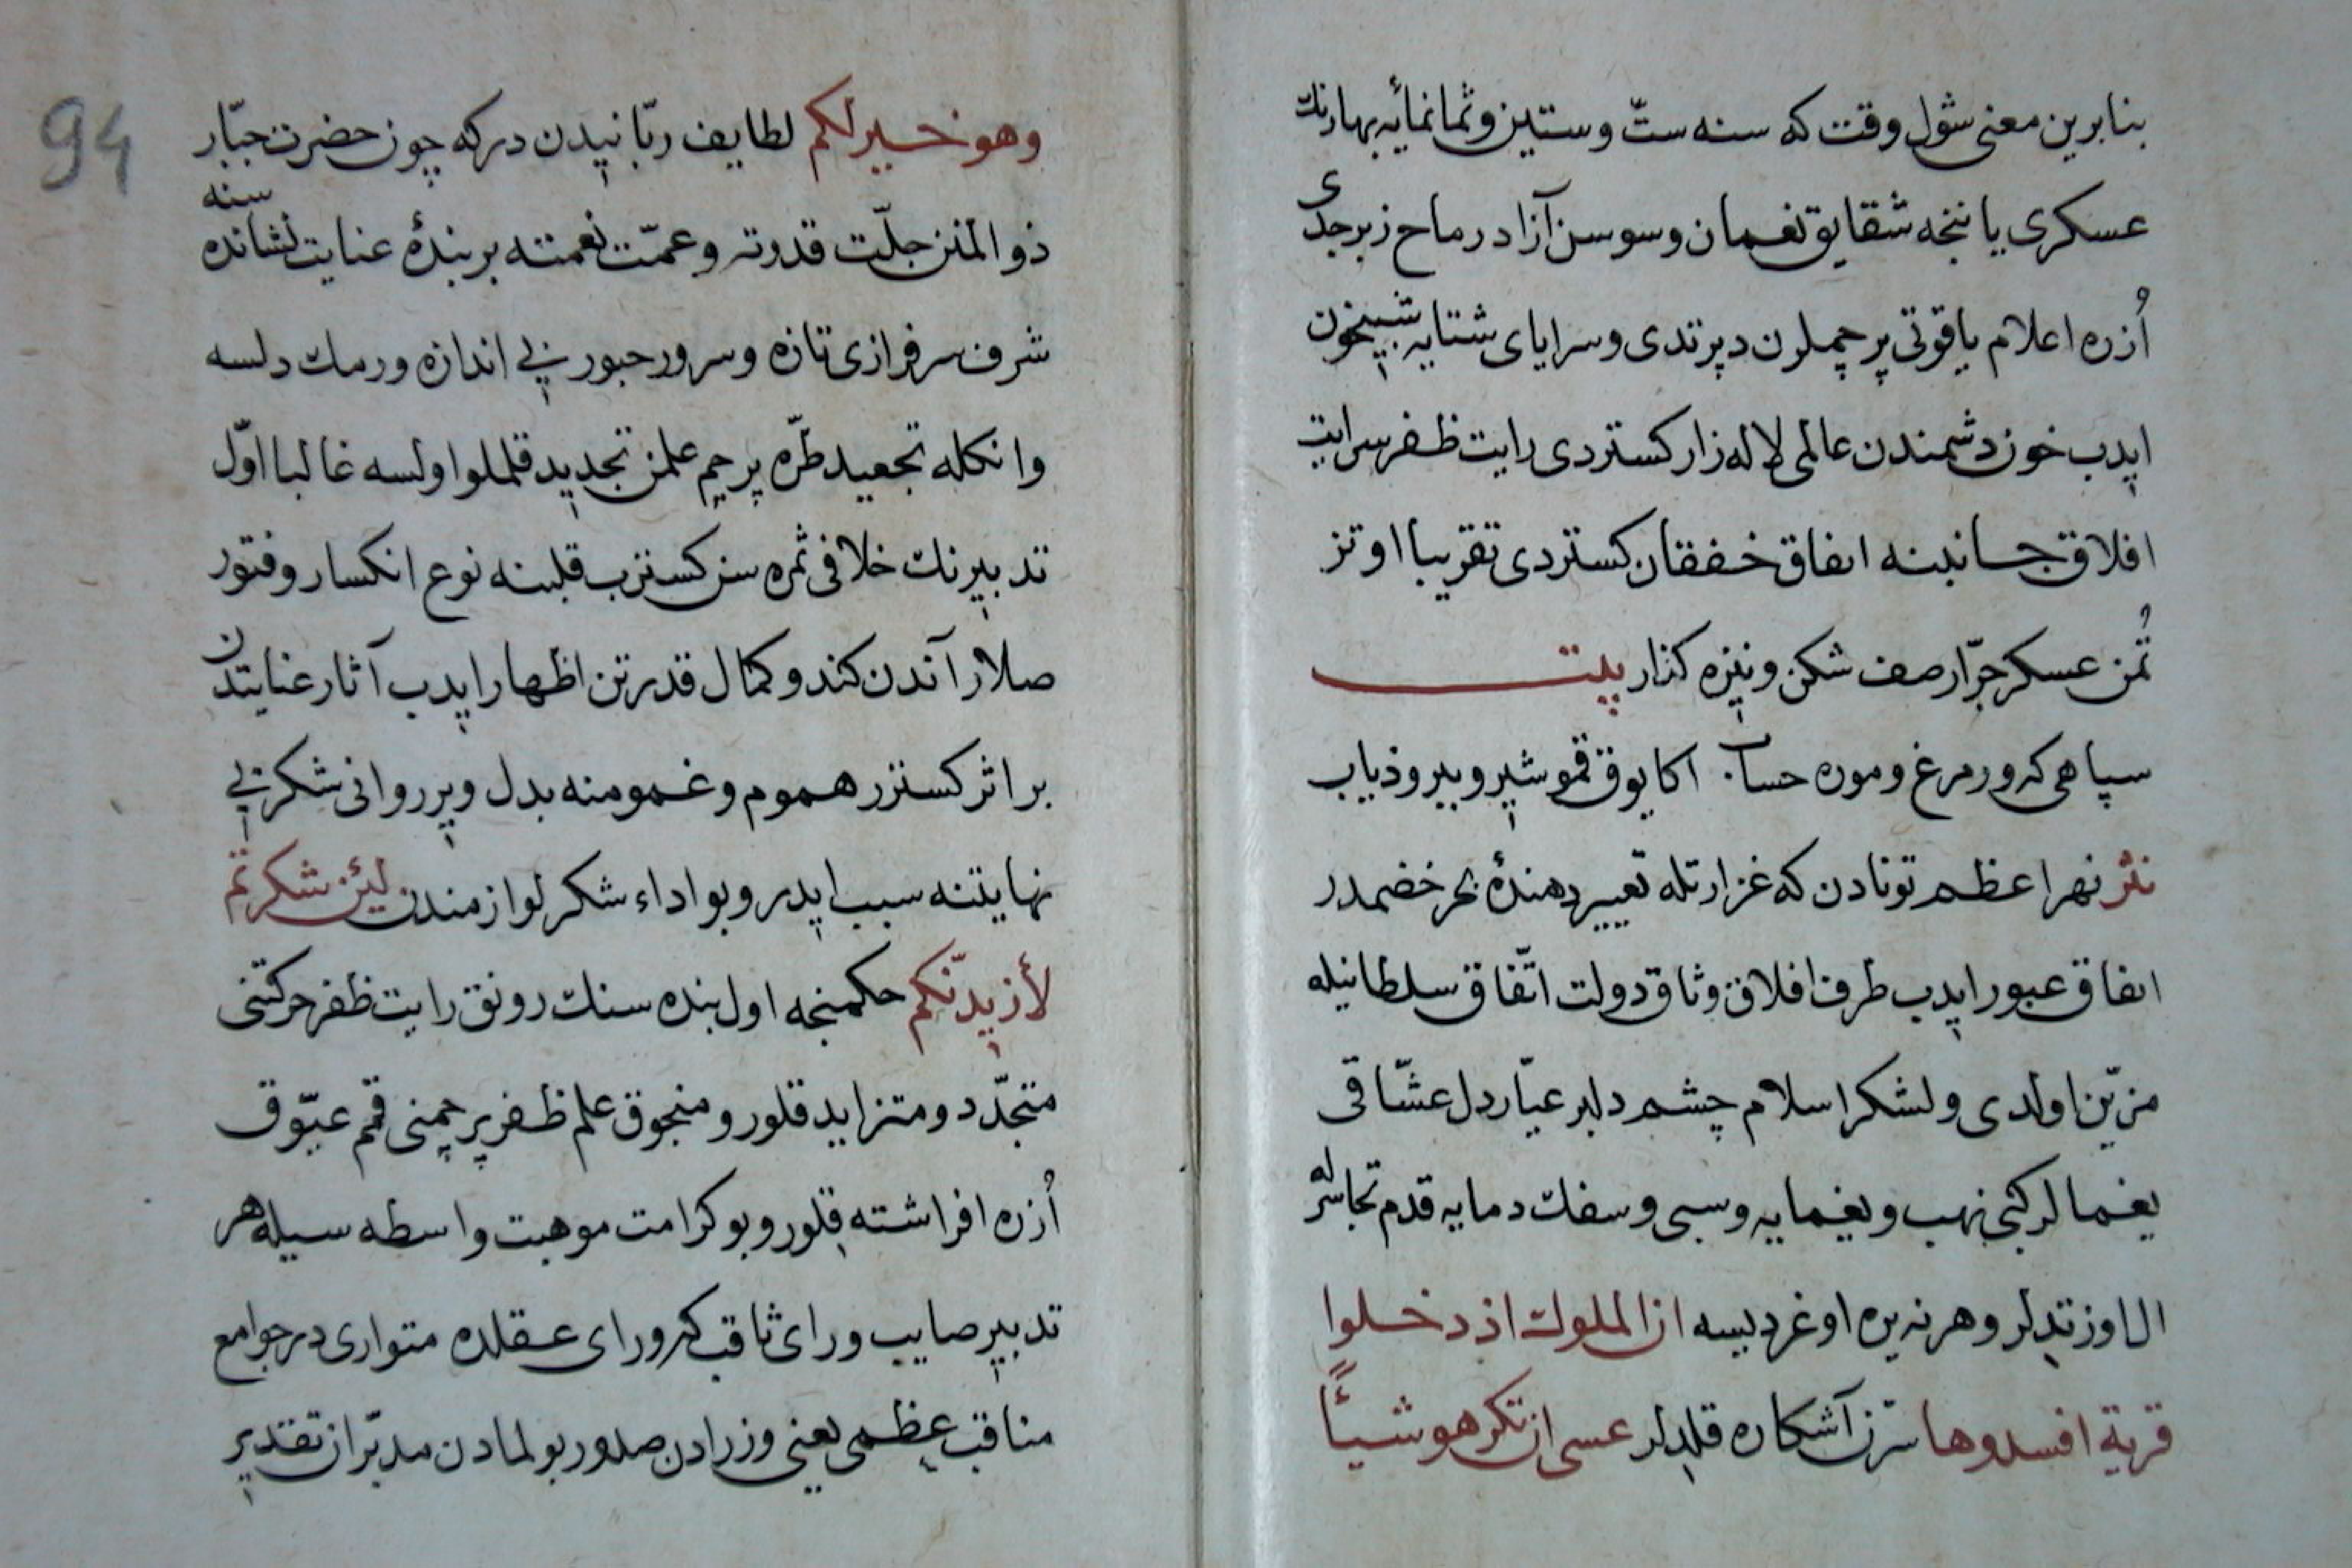 بنابرین معنی شول وقت که سنه ستّ وستین وثمانمائیه بهارنك
عسکری یا نخه شقایق نعمان وسوسن آزاد رماح زبرجدی
اُزره اعلام یاقوتی پرچملرن دپرتدی وسرایای شتایه شبیخون
ایدب خون دشمندن عالمی لاله زار کستردی رایت ظفر سرایت
افلاق جانبنه اتفاق خفقان کستردی تقریبا اوتز
تُمن عسکر جرّار صف شکن ونیزه کذار بیت
سپاهی که ور مرغ وموره حساب اکا یوق قمو شیر وببر وذیاب
نثر نهر اعظم تونادن که غزارتله تعییر دهندهٔ بحر خضمدر
اتفاق عبور ایدب طرف افلاق وثاق دولت اتّفاق سلطانیله
مزیّن اولدی ولشکر اسلام چشم دلبر عیّار دل عشّاقی
یغمالر کبی نهب ویغمایه وسبی وسفك دمایه قدم تجاسرله
ال اوزتدلر وهر نه یره اوغردیسه ان الملوك اذ دخلوا
قریة افسدوها سرّن آشکاره قلدلر عسی ان تکرهو شیئاً
94
وهو خیر لکم لطایف ربّانیدن درکه چون حضرت جبّار
ذو المنن جلّت قدرته وعمّت نعمته بر بندهٔ عنایت نشاندهسنه
شرف سرفرازی تازه وسرور حبور بی اندازه ورمك دلسه
وانکله تجعید طرّه پرچم علمن تجدید قلملو اولسه غالبا اوّل
تدبیرنك خلافی ثمره سن کسترب قلبنه نوع انکسار وفتور
صلار آندن کندو کمال قدرتن اظهار ایدب آثار عنایتدن
بر اثر کسترر هموم وغمومنه بدل وپر روانی شکر بی
نهایتنه سبب ایدر وبو اداء شکر لوازمندن لئن شکرتم
لأزیدنّکم حکمنجه اول بنده سنك رونق رایت ظفر حرکتنی
متجدّد ومتزاید قلور ومنجوق علم ظفر پرچمنی قمم عیّوق
اُزره افراشته قلور وبو کرامت موهبت واسطه سیله هر
تدبیر صایب ورای ثاقب که ورای عقلده متواری در جوامع
مناقب عظمی یعنی وزرادن صدور بولمادن مدبّران تقدیر